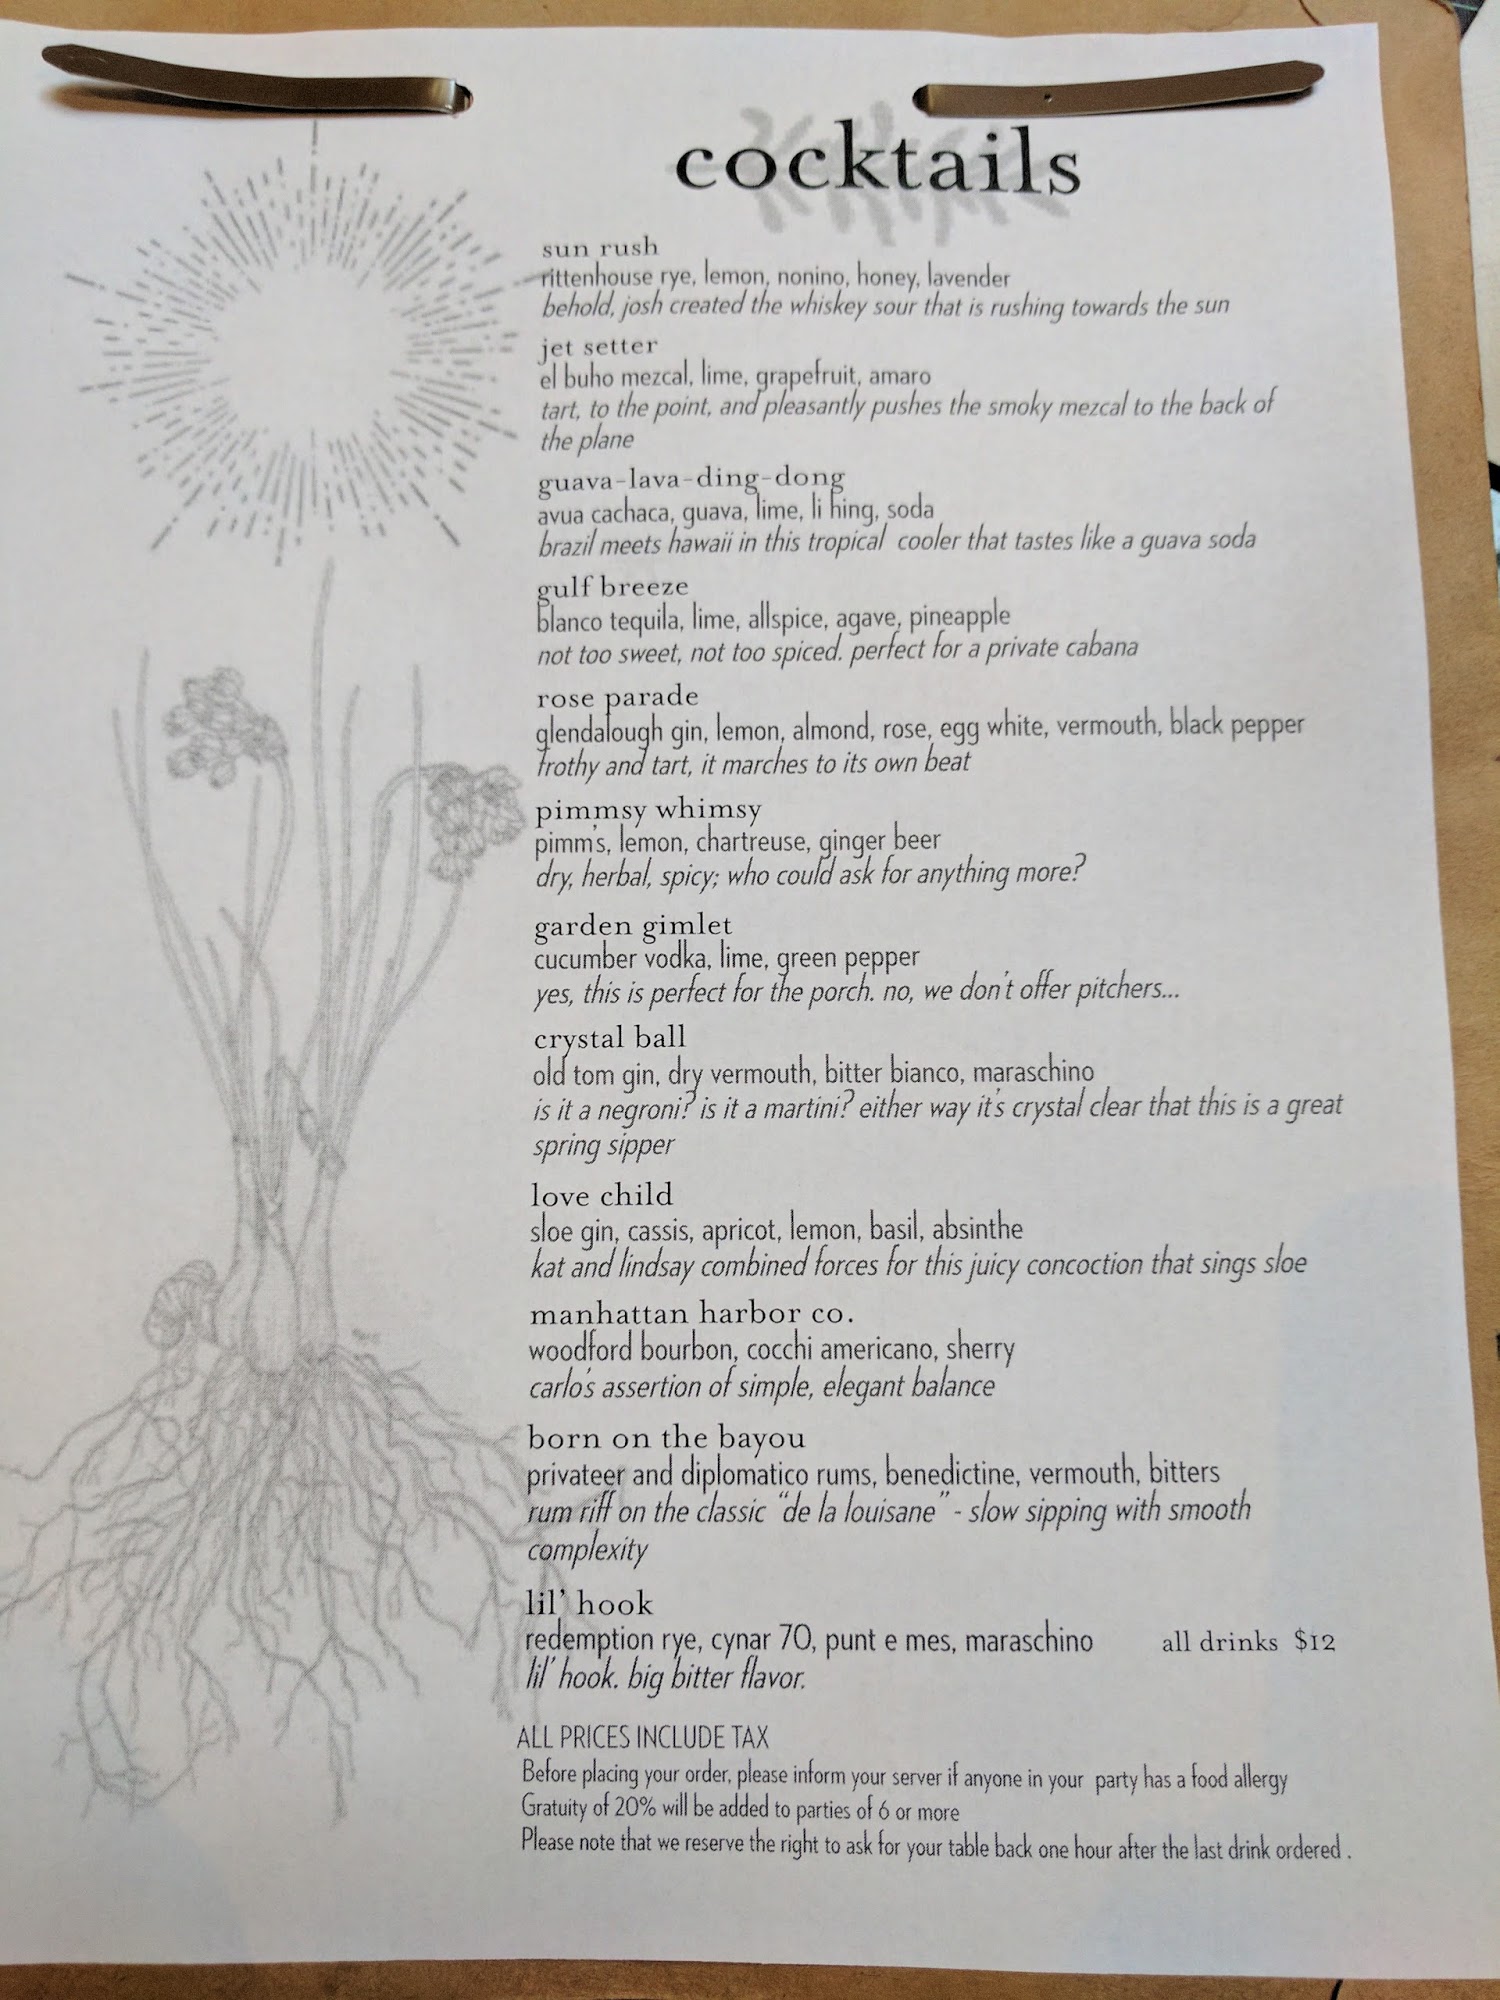 cocktails
sun rush
rittenhouse rye, lemon, nonino, honey, lavender
behold, josh created the whiskey sour that is rushing towards the sun
jet setter
el buho mezcal, lime, grapefruit, amaro
tart, to the point, and pleasantly pushes the smoky mezcal to the back of
the plane
guava-lava-ding-dong
avua cachaca, guava, lime, li hing, soda
brazil meets hawaii in this tropical cooler that tastes like a guava soda
gulf breeze
blanco tequila, lime, allspice, agave, pineapple
not too sweet, not too spiced. perfect for a private cabana
rose parade
glendalough gin, lemon, almond, rose, egg white, vermouth, black pepper
frothy and tart, it marches to its own beat
pimmsy whimsy
pimm's, lemon, chartreuse, ginger beer
dry, herbal, spicy; who could ask for anything more?
garden gimlet
cucumber vodka, lime, green pepper
yes, this is perfect for the porch. no, we don't offer pitchers...
crystal ball
old tom gin, dry vermouth, bitter bianco, maraschino
is it a negroni? is it a martini? either way it's crystal clear that this is a great
spring sipper
love child
sloe gin, cassis, apricot, lemon, basil, absinthe
kat and lindsay combined forces for this juicy concoction that sings sloe
manhattan harbor co.
woodford bourbon, cocchi americano, sherry
carlo's assertion of simple, elegant balance
born on the bayou
privateer and diplomatico rums, benedictine, vermouth, bitters
rum riff on the classic "de la louisane" - slow sipping with smooth
complexity
lil' hook
redemption rye, cynar 70, punt e mes, maraschino all drinks $12
lil' hook. big bitter flavor.
ALL PRICES INCLUDE TAX
Before placing your order, please inform your server if anyone in your party has a food allergy
Gratuity of 20% will be added to parties of 6 or more
Please note that we reserve the right to ask for your table back one hour after the last drink ordered .